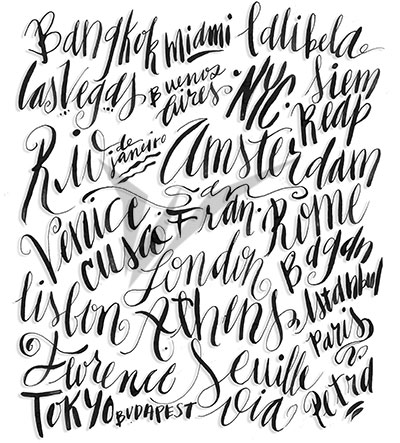 Bangkok Miami Lalibela
Las Vegas Buenos Aires NYC. Siem Reap
Rio de janeiro Amsterdam
Venice San Fran. Rome
Cusco London Bagan
Lisbon Athens Istanbul
Florence Seville Paris
Tokyo BUDAPEST via Petra